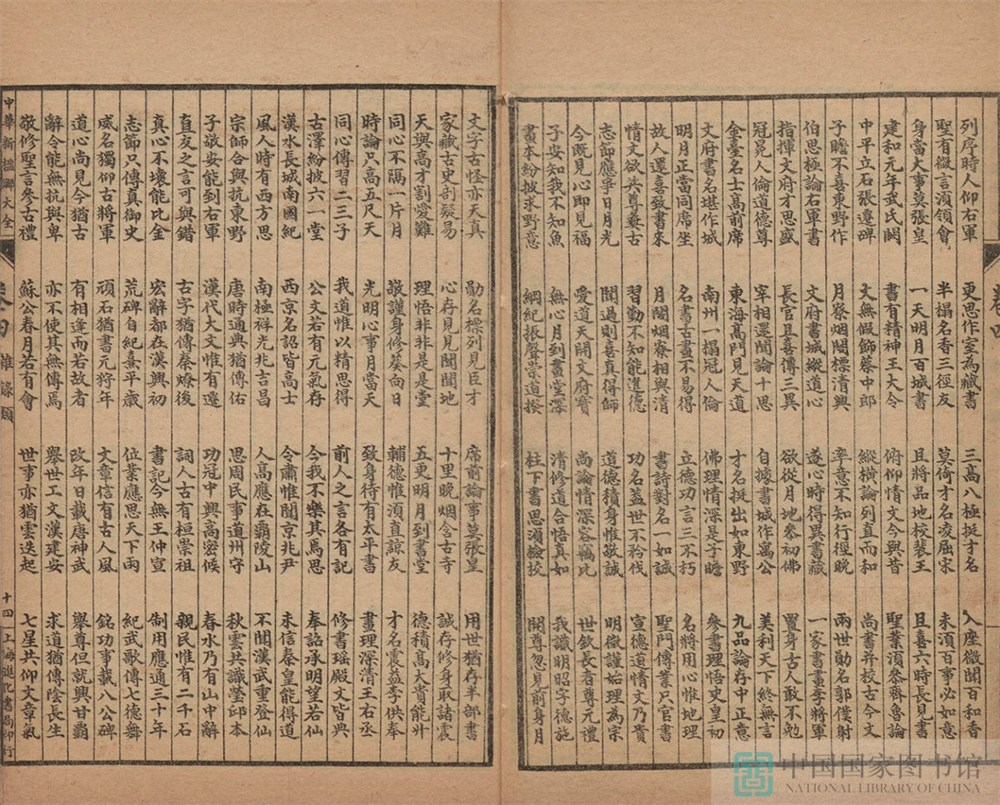 卷四
列序時人仰右軍 更思作室為藏書 三高八極挺才名 入座微聞百和香
聖有微言須領會 半榻名香三徑友 莫倚才名凌屈宋 未須百事必如意
身當大事莫張皇 一天明月百城書 且將品地校裴王 且喜六時長見書
建和元年武氏闕 書有精神王大令 俯仰情文今與昔 聖業須參齊魯論
中平立石張遷碑 大無假飾蔡中郎 縱橫論列直而和 尚書并校古今文
子瞻不喜東野作 月寮烟閣標清興 率意不知行徑晚 兩世勛名郭僕射
伯思極論右軍書 文府書城縱道心 遂心時得異書藏 一家書畫李將軍
指揮文府才思盛 長官且喜傳三異 欲從月地參初佛 置身古人敢不勉
冠冕人倫道德尊 宰相還聞論十思 自據書城作寓公 美利天下終無言
金臺名士高前席 東海高門見天道 才名挺出如東野 九品論存中正意
文府書名堪作城 南州一榻冠人倫 佛理情深是子瞻 參書理悟史皇初
明月正當同席坐 名書古畫不易得 立德功言三不朽 名將用心惟地理
故人還喜致書來 月閣烟寮相與清 書詩對名一如誠 聖門傳業只官書
情文欲共尊彝古 習勤不知能進德 功名蓋世不矜伐 宣德達情文乃貴
志節應爭日月光 聞過則喜真得師 道德積身惟敬誠 明微謹始理為宗
今既見心即見福 愛道天開文府寶 尚論情深容藏比 世欽長者尊元禮
子安知我不知魚 無心月到畫堂深 清修道合悟真如 我識明昭字德施
畫本紛披求野意 綱紀振聲崇道揆 柱下書思須檢校 開尊忽見前身月
文字古怪亦天真 勛名標列見臣才 席前論事莫張皇 用世猶存半部書
家藏古史剖疑易 心存見見聞聞地 十里晚烟含古寺 誠存修身取諸震
天與高才割愛難 理悟非非是是堂 五更明月到書堂 德積高大貴能升
同心不隔一片月 敬謹身修葵向日 輔德惟須直諒友 才名震益李供奉
時論只高五尺天 光明心事月當天 致身待有太平書 畫理深清王右丞
同心傳習二三子 我道惟以精思得 前人之言各有記 修書瑤殿文皆典
古澤紛披六一堂 公文若有元氣存 今我不樂其焉思 奉詔承明望若仙
漢水長城南國紀 西京名詔皆高士 令肅惟聞京兆尹 未信秦皇能得道
風人時有西方思 南極祥光兆吉昌 人高應在霸陵山 不聞漢武重登仙
宗師合與抗東野 唐時通典猶傳佑 思周民事道州守 秋雲共識瑩邱本
子敬安能到右軍 漢代大文惟有遷 功冠中興高密候 春水乃有山中辭
直友之言可與錯 古字猶傳秦燎後 詞人古有桓榮祖 親民惟有二千石
真心不壞能比金 宏辭都在漢興初 書記今無王仲宣 制用應通三十年
志節只傳真御史 荒碑自紀熹平歲 位業應思天下雨 紀武歌傳七德舞
威名獨仰古將軍 頑石猶書元狩年 文章信有古人風 銘功事載八公碑
道心尚見今猶古 有相逢而若故者 改年日載唐神武 舉尊但就興甘霸
辭令能無抗與卑 亦不使其無傳焉 舉世工文漢建安 求道猶傳陰長生
敬修聖言參古禮 蘇公春月若有會 世事亦猶雲迭起 七星共仰文章氣
中華新楹聯大全 卷四 雜錄類 十四 上海進化書局印行
中国国家图书馆
NATIONAL LIBRARY OF CHINA